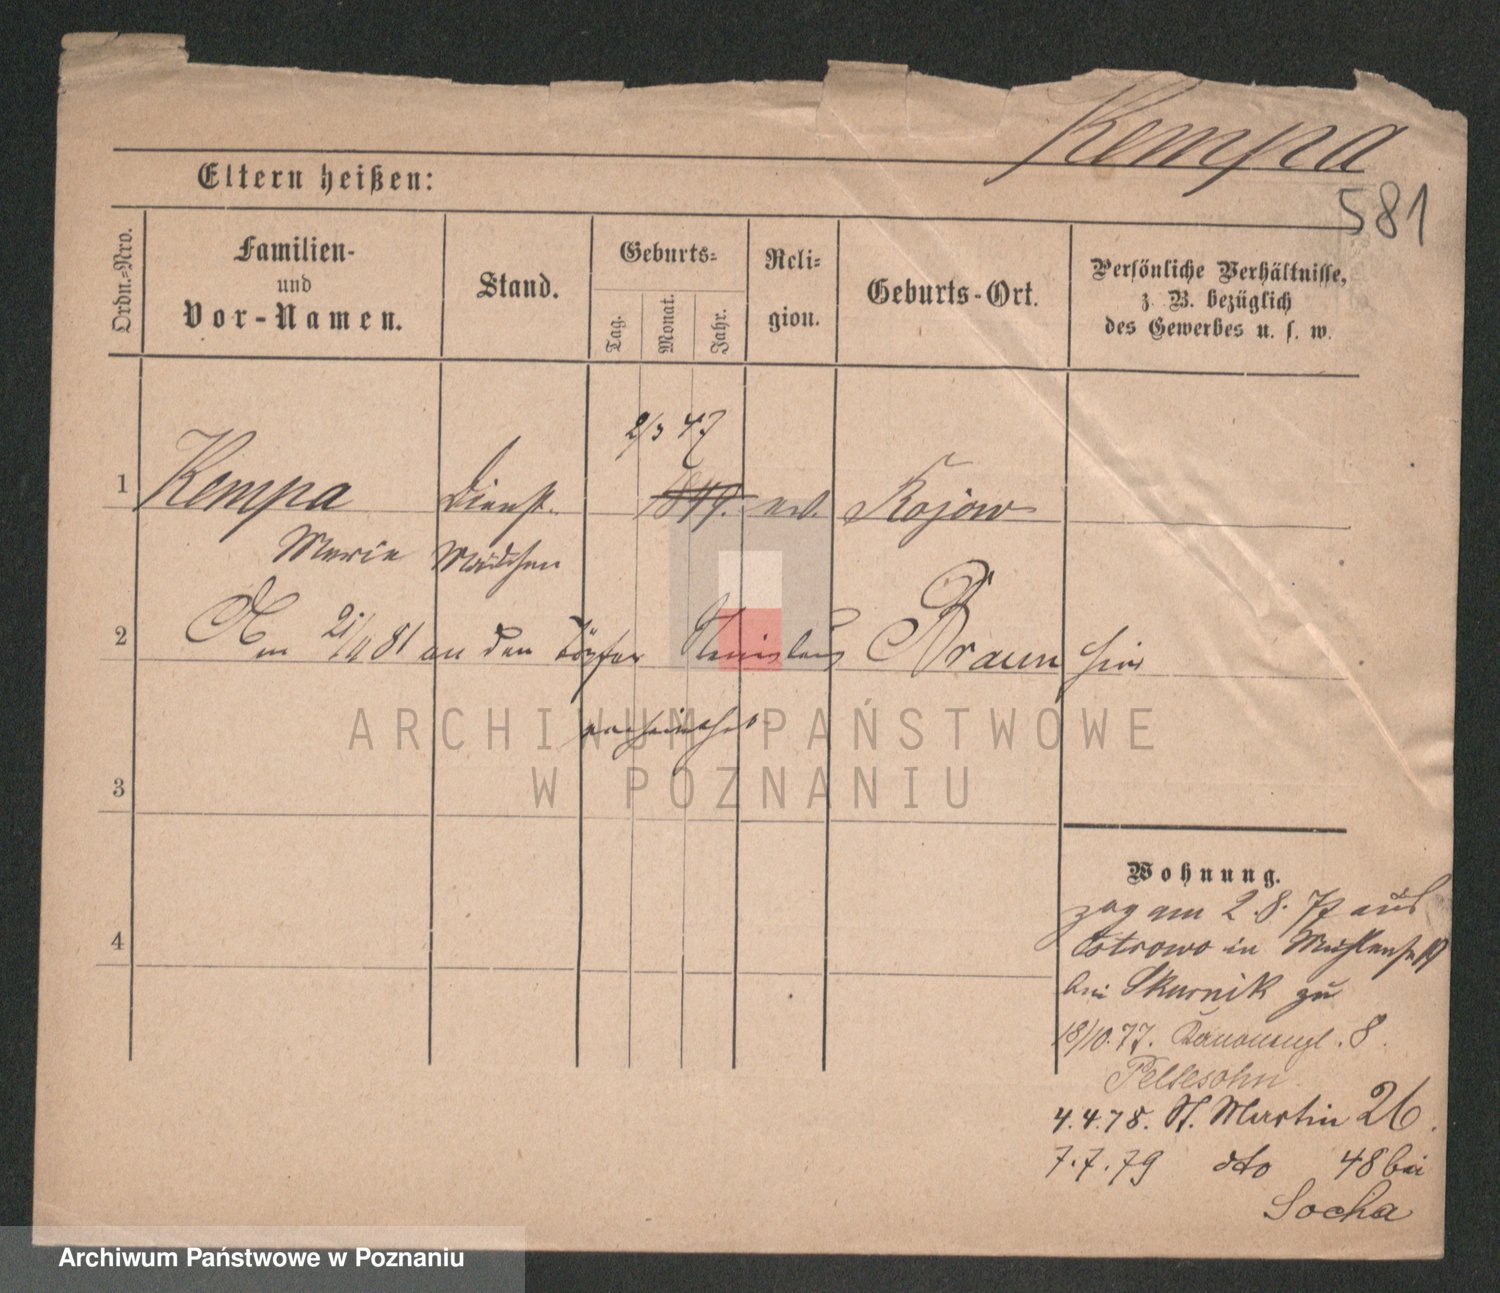 Kempa
581
Eltern heißen:
Ordn.-Nro.
Familien-
und
Vor-Namen.
Stand.
Geburts-
Tag.
Monat.
Jahr.
Reli-
gion.
Geburts-Ort.
Persönliche Verhältnisse,
z. B. bezüglich
des Gewerbes u. s. w.
2/3 47
1 Kempa Dienst- 1849. Kojow
Marie Mädchen
2 Am 21/ 81 an den Töpfer Stanislaus Braun hier
verheirathet
3
4
Wohnung.
zog am 2.8.77 aus
Ostrowo in 19
bei Skurnik zu
18/10.77. 8.
4.4.78. St. Martin 26.
7.7.79 dto 48 bei
Socha
ARCHIWUM PAŃSTWOWE
W POZNANIU
Archiwum Państwowe w Poznaniu